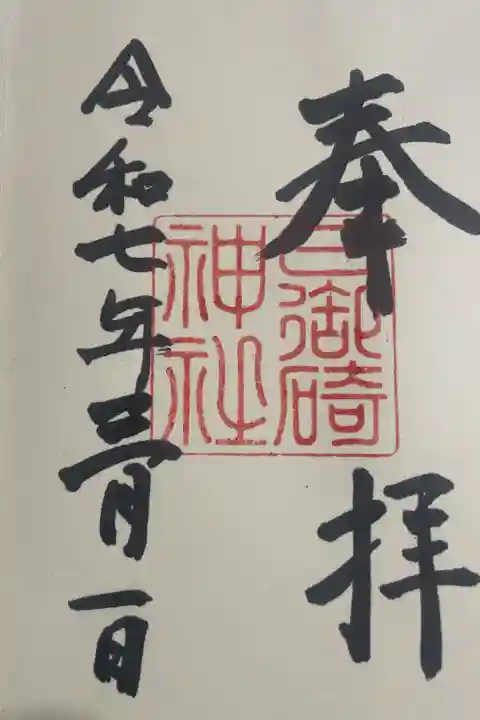 奉拝
日御碕
神社
令和七年三月一日